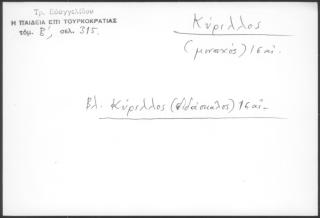 Τρ. Ευαγγελίδου
Η ΠΑΙΔΕΙΑ ΕΠΙ ΤΟΥΡΚΟΚΡΑΤΙΑΣ
τόμ. Β', σελ. 315.
Κύριλλος
(μοναχός) 18 αἰ.
Βλ. Κύριλλος (διδάσκαλος) 18 αἰ.